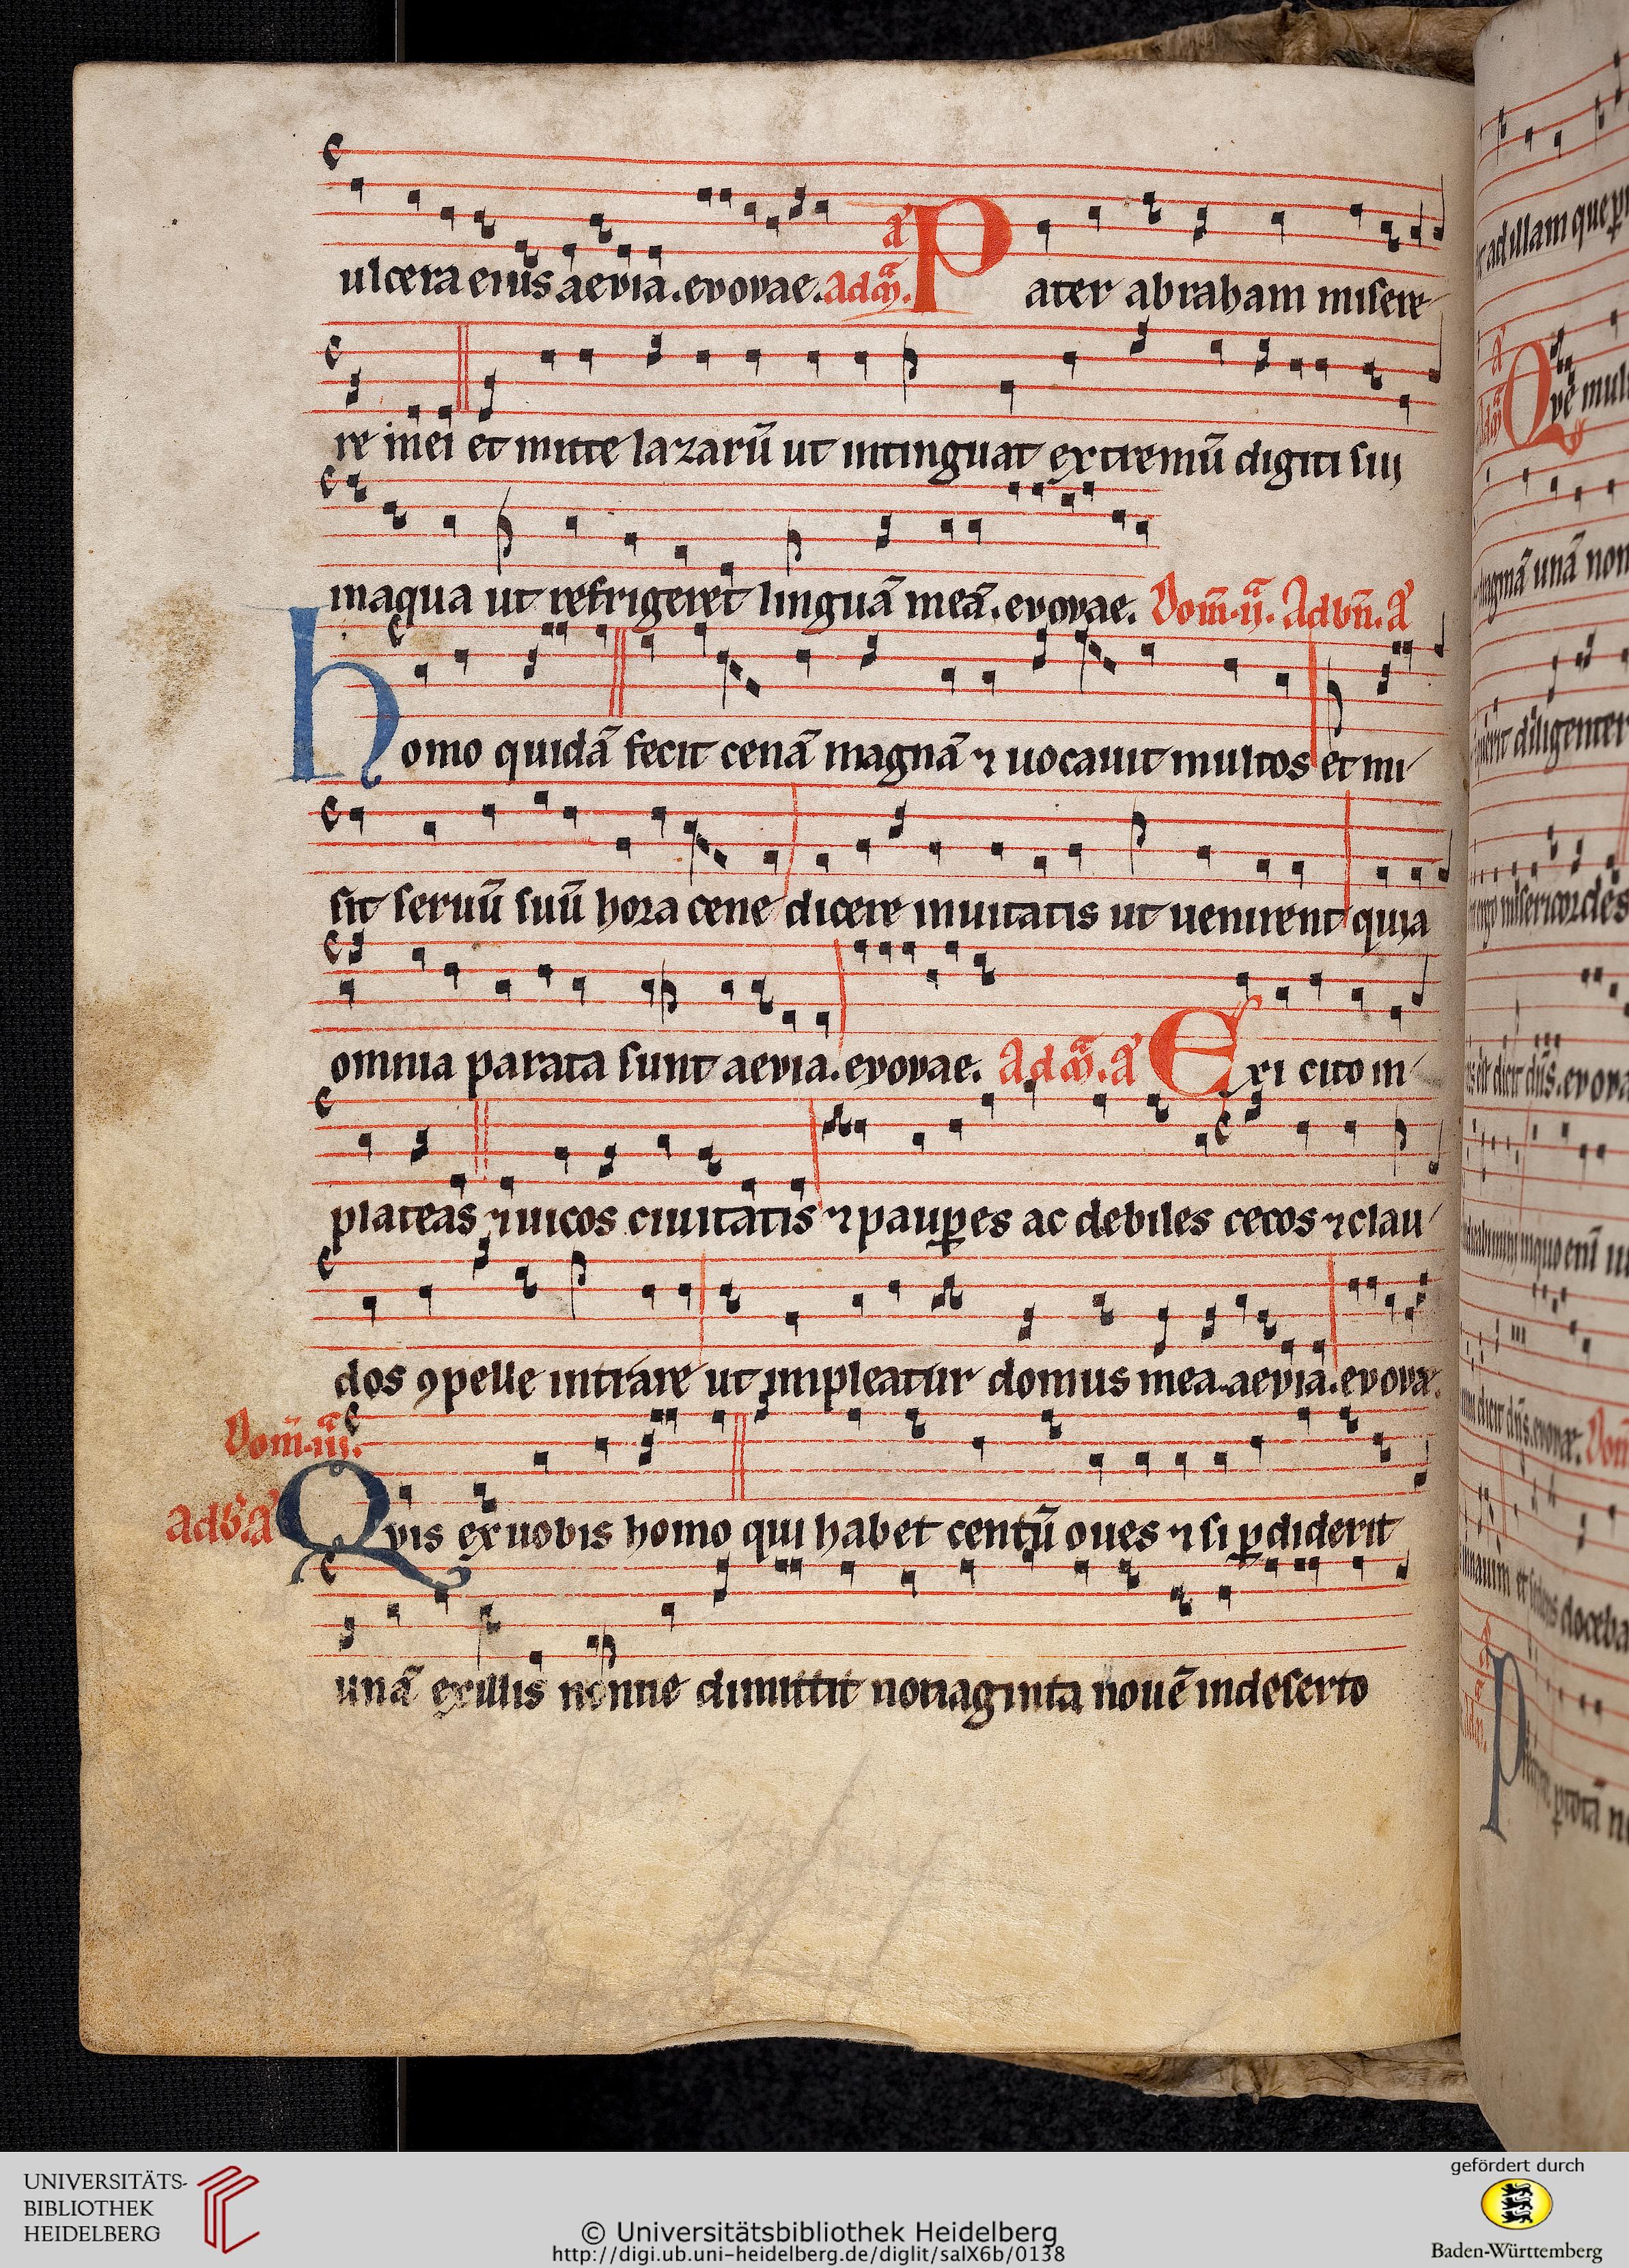 ulcera eius aevia. evovae. ad m̄. a Pater abraham misere
re mei et mitte lazarū ut intinguat extremū digiti sui
inaqua ut refrigeret linguā meā. evovae. Dom̄. ij. Ad bn̄. a
homo quidā fecit cenā magnā ⁊ uocauit multos et mi
sit seruū suū hora cene dicere inuitatis ut uenirent quia
omnia parata sunt aevia. evovae. Ad m̄. a Exi cito in
plateas ⁊ uicos ciuitatis ⁊ paup̱es ac debiles cecos ⁊ clau
dos ꝯpelle intrare ut impleatur domus mea. aevia. evovae.
Dom̄. iij.
ad b. a Qvis ex uobis homo qui habet centū oues ⁊ si ꝑdiderit
unā exillis nonne dimittit nonaginta nouē indeserto
UNIVERSITÄTS-
BIBLIOTHEK
HEIDELBERG
© Universitätsbibliothek Heidelberg
http://digi.ub.uni-heidelberg.de/diglit/salX6b/0138
gefördert durch
Baden-Württemberg